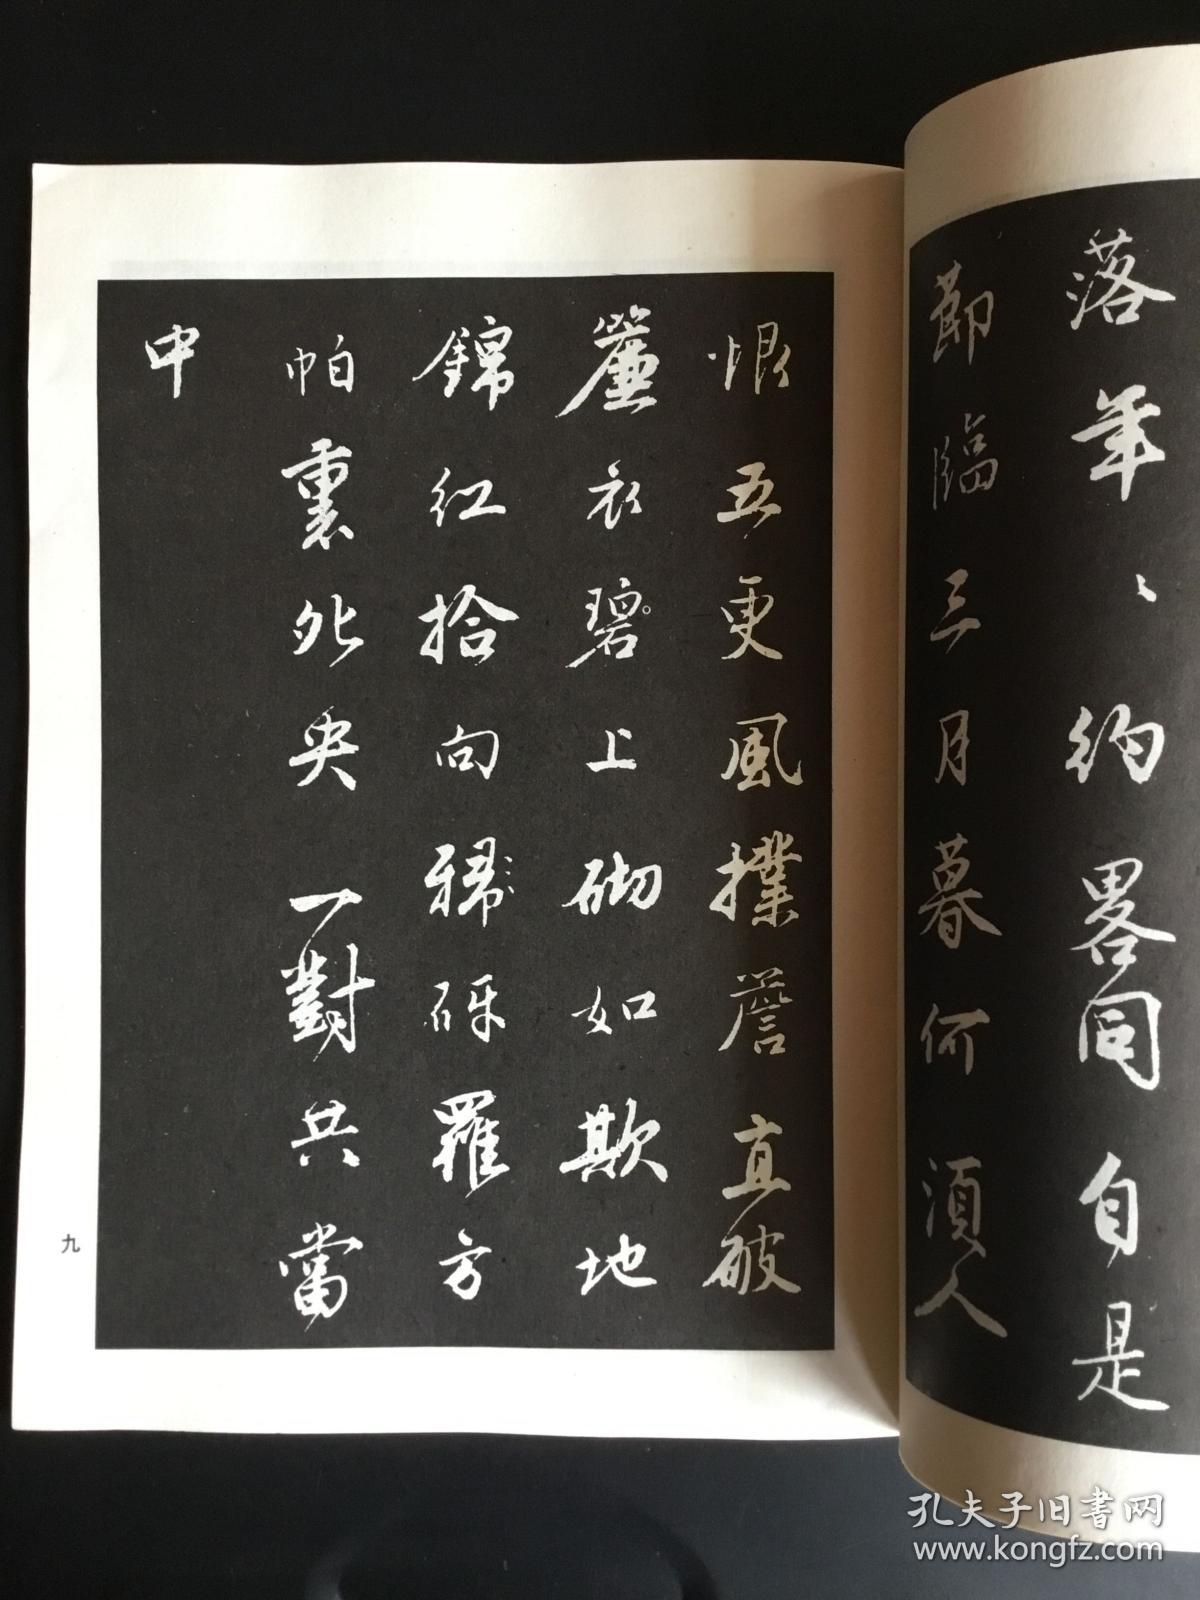 落年〻約畧同自是
節臨三月暮何須人
恨五更風撲簷直破
簾衣碧上砌如欺地
錦紅拾向砑羅方
帕裏死央一對共當
中
九
孔夫子旧书网
www.kongfz.com